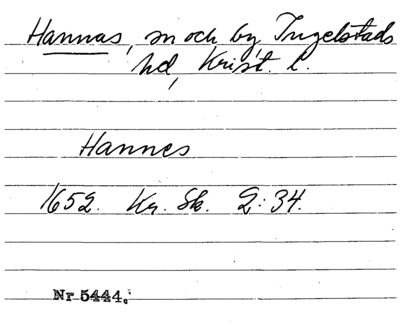 Hannas, sn och by, Ingelstads
hd, Krist. l.
Hannes
1652. Kr. Sk. 2:34.
Nr 5444.